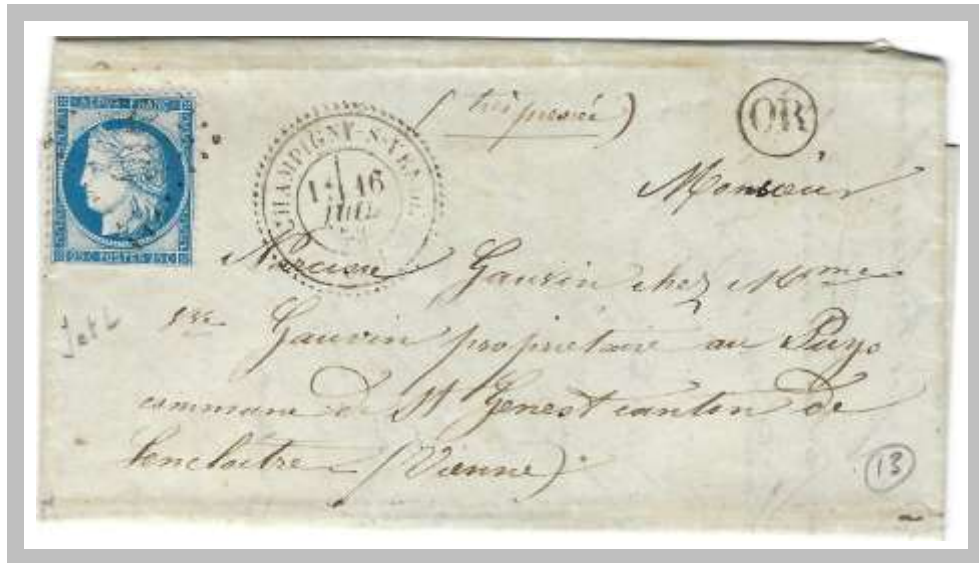 REPUB. FRANC.
25 C POSTES 25 C
CHAMPIGNY-S-VEUDE
1E 16
JUIL
OR
(très pressée)
Monsieur
Narcisse Gauvin chez Mme
Vve Gauvin propriétaire au Puys
commune de St Genest canton de
Lencloitre (Vienne)
13